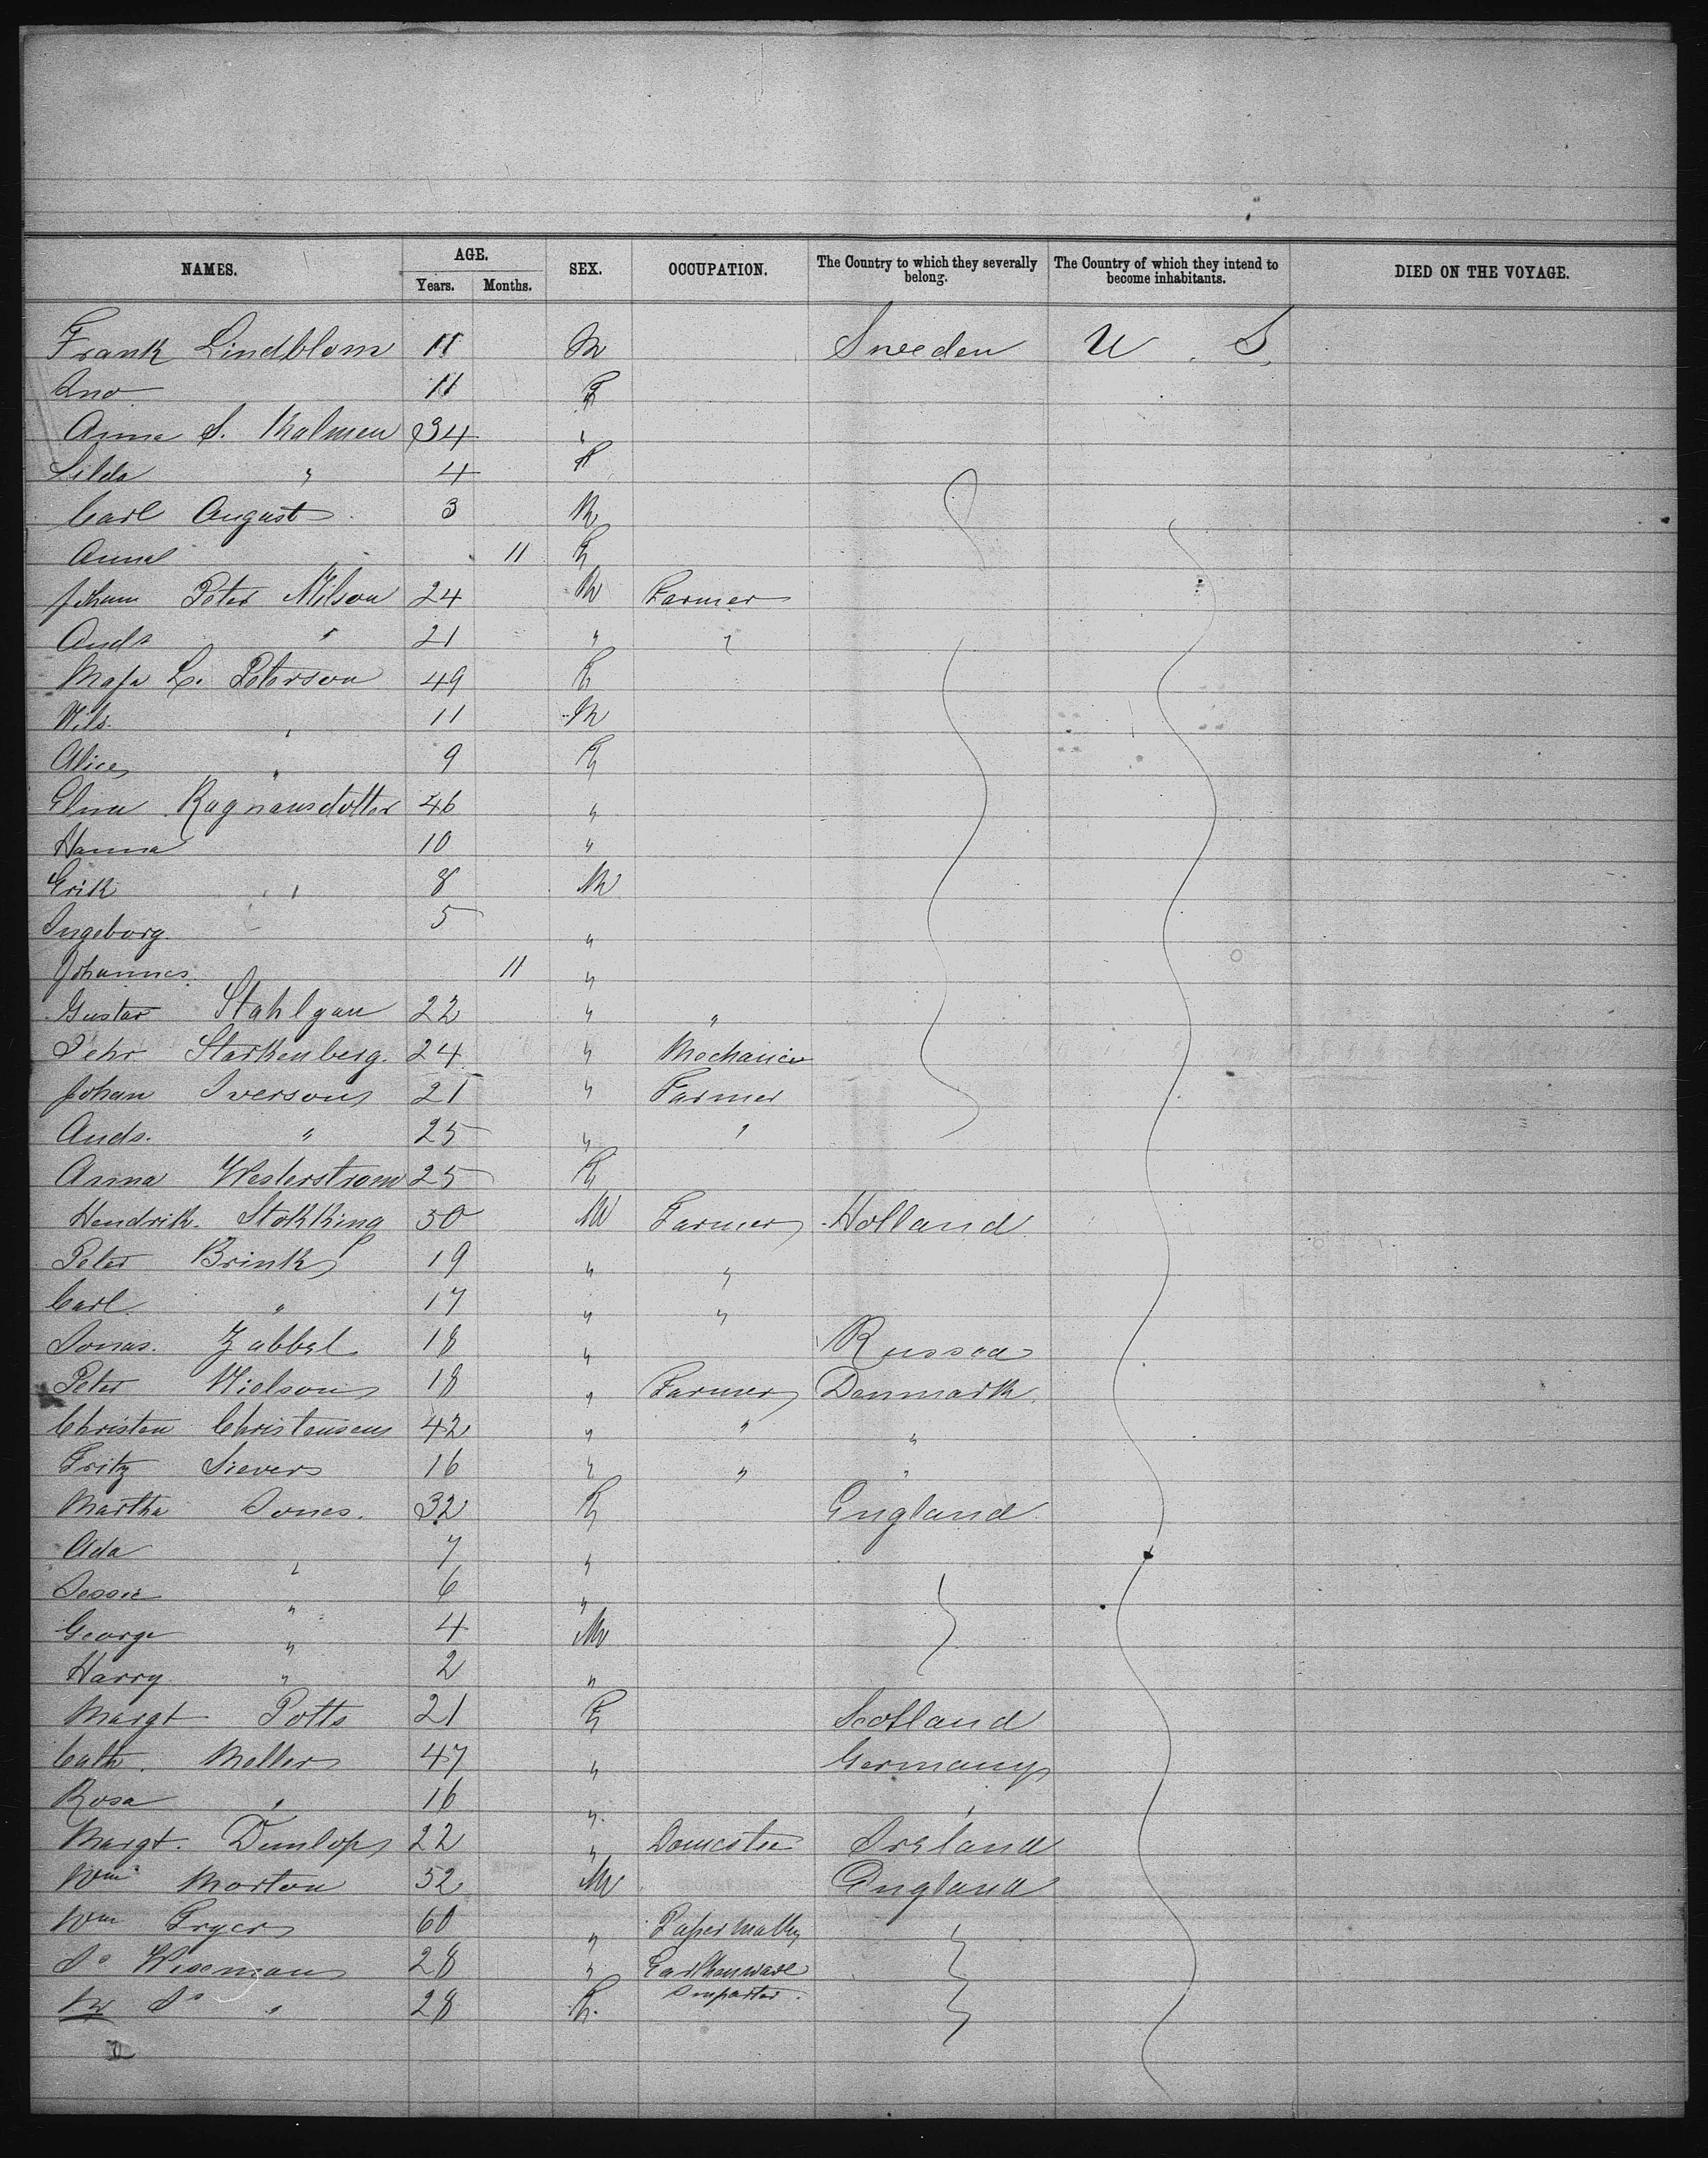 NAMES. AGE. SEX. OCCUPATION. The Country to which they severally belong. The Country of which they intend to become inhabitants. DIED ON THE VOYAGE.
Years. Months.
Frank Lindblom 11 M Sweeden U. S.
11 F
Anna S. Malmen 34 "
" 4 F
Carl August 3 M
Anna 11 F
Johann Peter Nilson 24 M Farmer
Ands " 21 " "
Maja L. Peterson 49 F
Nils " 11 M
Alice " 9 F
Elina Ragnarsdotter 46 "
Hanna 10 "
Erik " 8 M
Ingeborg 5 "
Johannes 11 "
Gustav Stahlgan 22 " "
Pehr Starkenberg. 24 " Mechanic
Johan Iverson 21 " Farmer
Ands. " 25 " "
Anna Westerstrom 25 F
Hendrik. Stokking 50 M Farmer Holland
Peter Brink 19 " "
Carl " 17 " "
Jonas. Zabbel 18 " Russia
Peter Nielson 18 " Farmer Denmark
Christen Christensen 42 " " "
Fritz Sievers 16 " " "
Martha Jones. 32 F England
Ada " 7 "
Jessie " 6 "
George " 4 M
Harry " 2 "
Margt Potts 21 F Scotland
Cath. Moller 47 " Germany
Rosa " 16 " "
Margt. Dunlop 22 " Domestic Ireland
Wm Morton 52 M England
Wm Pryer 60 "
Jo Wiseman 28 " Earthenware
Mr Jo " 28 F. Importer.